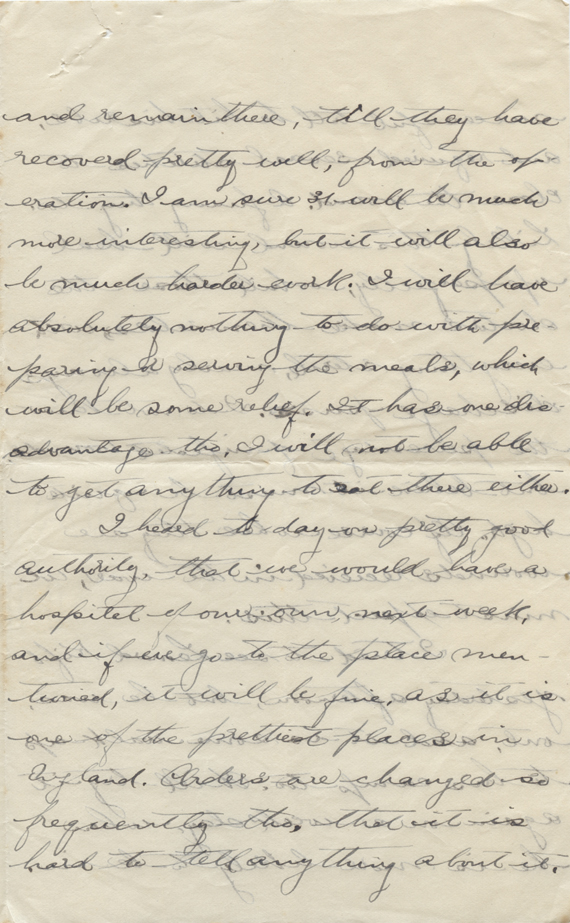 and remain there, till they have
recoverd pretty well, from the op
eration. I am sure it will be much
more interesting, but it will also
be much harder work. I will have
absolutely nothing to do with pre
paring & serving the meals, which
will be some relief. It has one dis
advantage tho, I will not be able
to get anything to eat there either.
I heard to day on pretty good
authority, that we would have a
hospital of our own next week,
and if we go to the place men-
tioned, it will be fine, as it is
one of the prettiest places in
England. Orders are changed so
frequently tho, that it is
hard to tell anything about it.